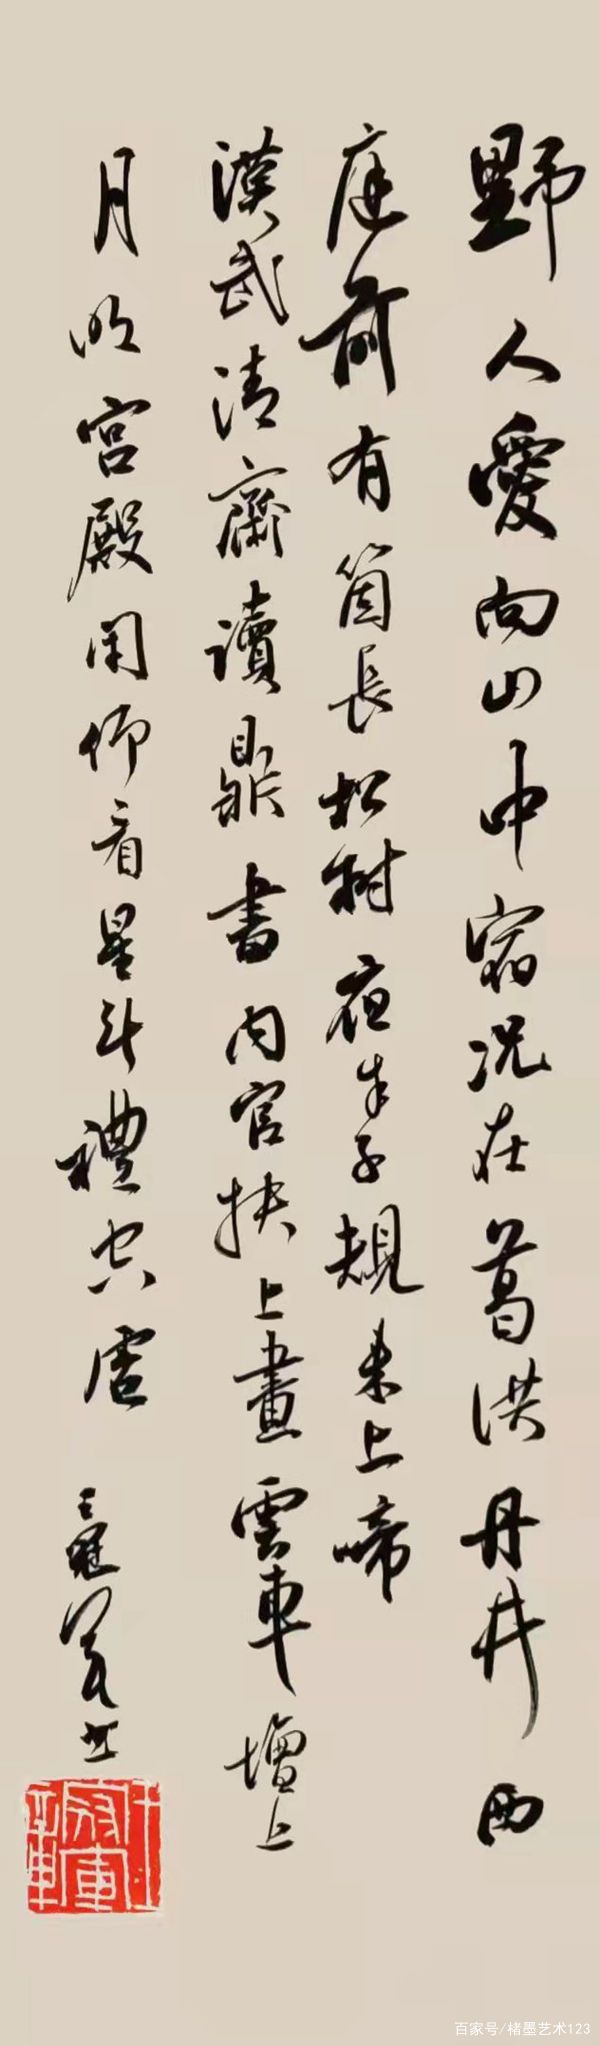 野人愛向山中宿况在葛洪丹井西
庭前有箇長松樹夜半子規来上啼
漢武清齋讀鼎書内官扶上畫雲車壇上
月明宮殿閉仰看星斗禮空虚
王冠军书
百家号/楮墨艺术123